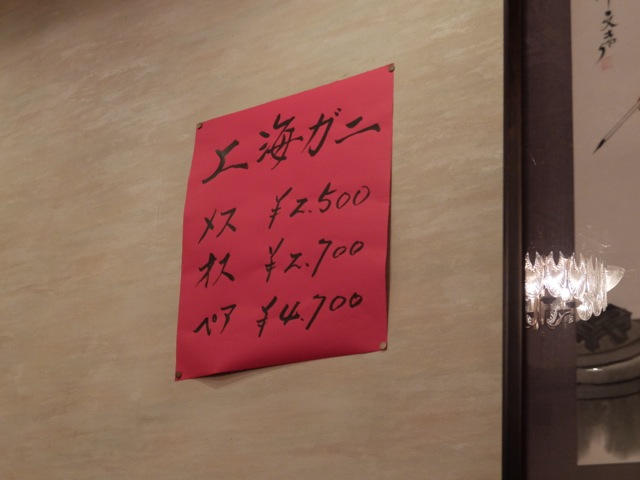 上海ガニ
メス ¥2.500
オス ¥2.700
ペア ¥4.700